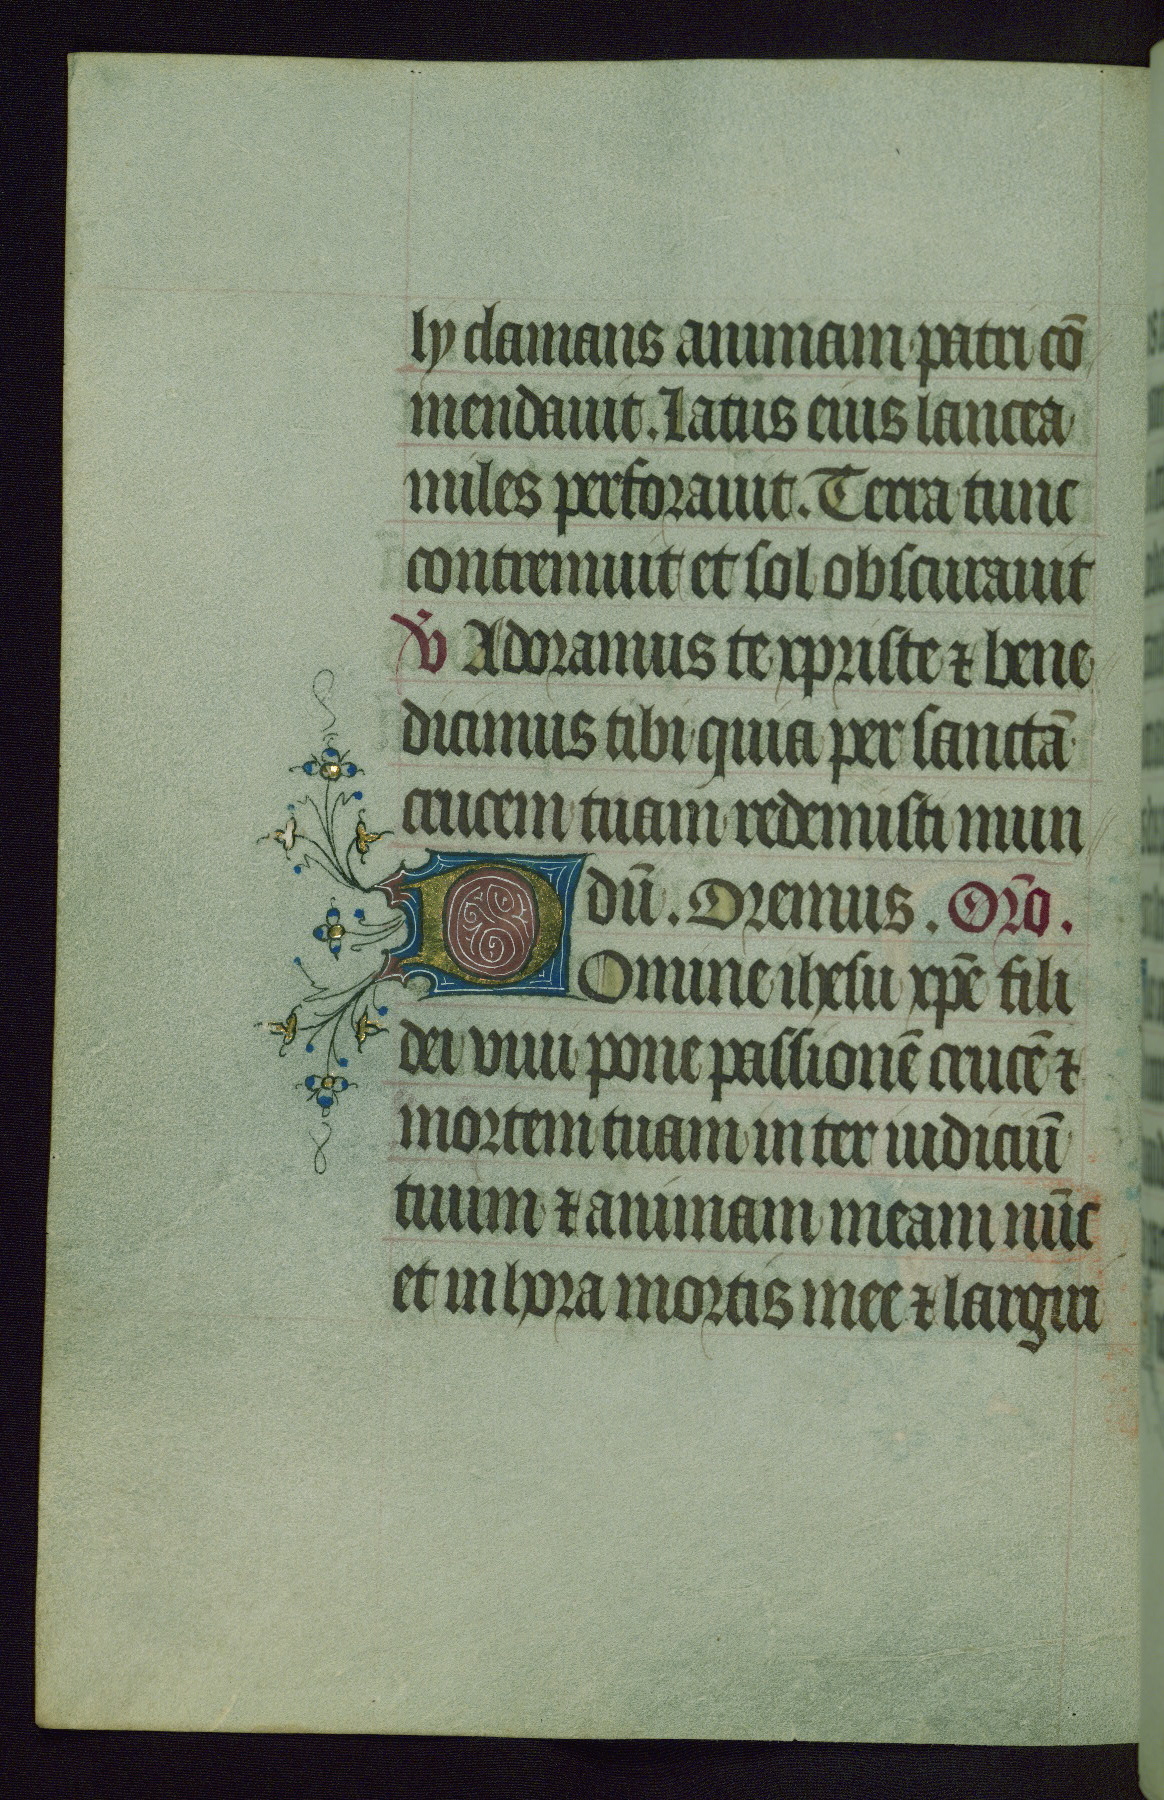 ly clamans animam patri cō
mendauit. Latus eius lancea
miles perforauit. Terra tunc
contremuit et sol obscurauit
V̄ Adoramus te xpriste ⁊ bene
dicimus tibi quia per sanctā
crucem tuam redemisti mun
dū. Oremus. Oro̅.
DOmine ihesu xp̄e fili
dei viui pone passionē crucē ⁊
mortem tuam inter iudiciū
tuum ⁊ animam meam nūc
et in hora mortis mee ⁊ largiri